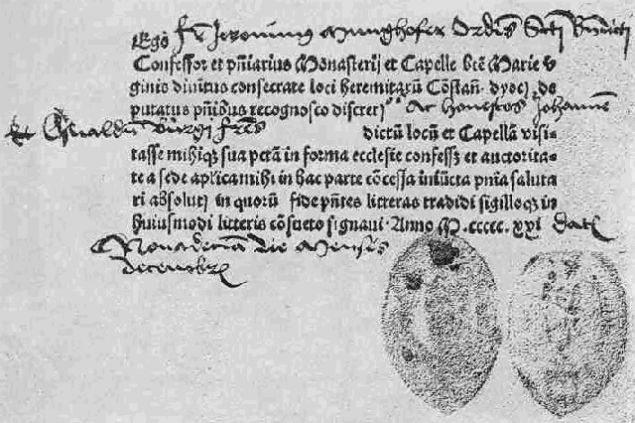 Ego Fr Jeronimus Munghofer Ordis Scti Bndicti
Confessor et pñiarius Monasterij et Capelle btē Marie v
ginis diuītus consecrate loci heremitarū Cōstañ. dyoc̄. de
putatus pñibus recognosco discret Ac honestos Johannē
et Oswaldū burgi frēs dictū locū et Capellā visi⸗
tasse mihiq sua pctā in forma ecclesie confessz et auctorita⸗
te a sede aplica mihi in hac parte cōcessa iniūcta pnīa saluta
ri absoluj in quorū fidē pñtes litteras tradidi sigilloqz in
huiusmodi litteris cōsueto signaui. Anno M.ccccc.xxj Datū
Nonadecīa die Mensis
decembr